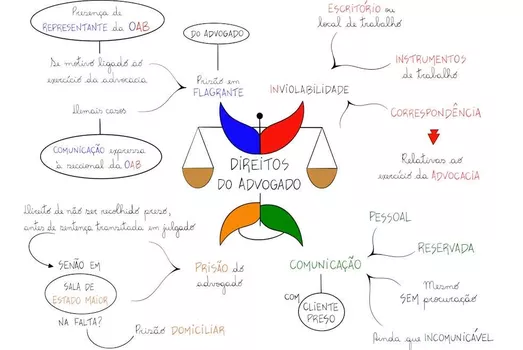 Presença de
REPRESENTANTE da OAB
Se motivo ligado ao
exercício da advocacia
Demais casos
COMUNICAÇÃO expressa
à seccional da OAB
DO ADVOGADO
Prisão em
FLAGRANTE
INVIOLABILIDADE
ESCRITÓRIO ou
local de trabalho
INSTRUMENTOS
de trabalho
CORRESPONDÊNCIA
Relativas ao
exercício da ADVOCACIA
DIREITOS
DO ADVOGADO
Direito de não ser recolhido preso,
antes de sentença transitada em julgado
SENÃO EM
SALA DE
ESTADO MAIOR
NA FALTA?
Prisão DOMICILIAR
PRISÃO do
advogado
COMUNICAÇÃO
COM
CLIENTE
PRESO
PESSOAL
RESERVADA
Mesmo
SEM procuração
Ainda que INCOMUNICÁVEL